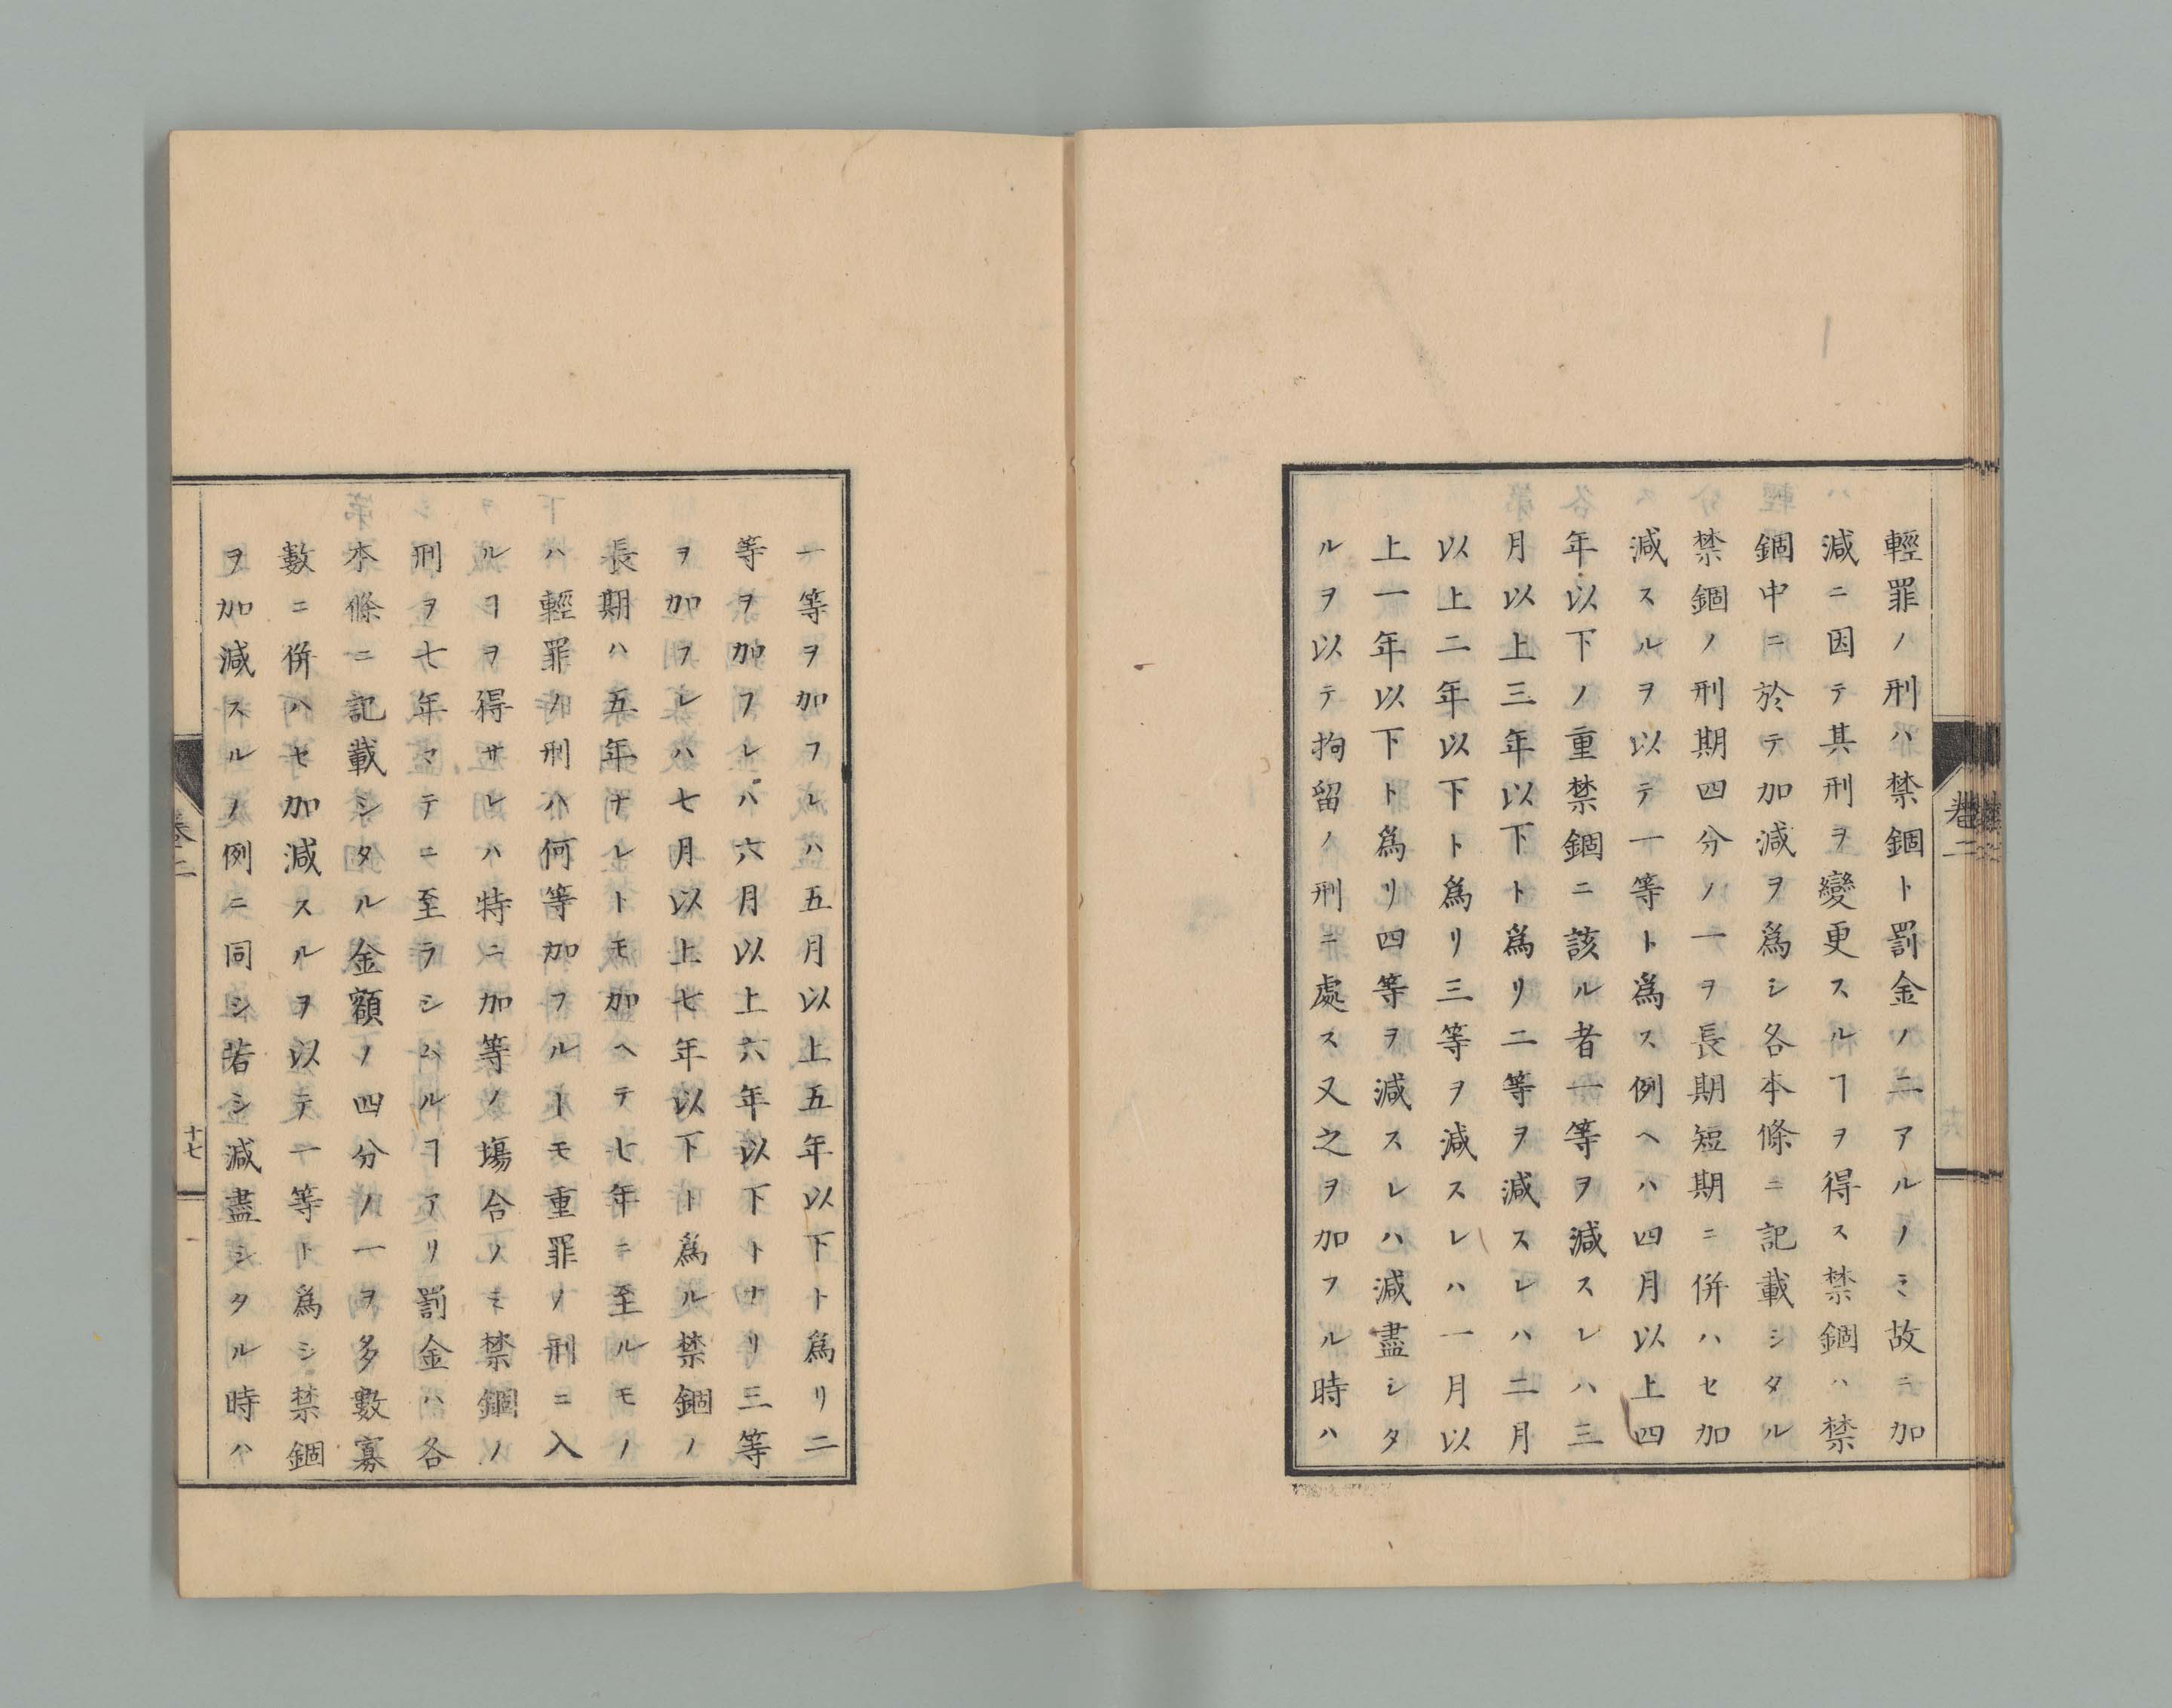 輕罪ノ刑ハ禁錮ト罰金ノ二アルノミ故ニ加
減ニ因テ其刑ヲ變更スルヿヲ得ス禁錮ハ禁
錮中ニ於テ加減ヲ爲シ各本條ニ記載シタル
禁錮ノ刑期四分ノ一ヲ長期短期ニ併ハセ加
減スルヲ以テ一等ト爲ス例ヘハ四月以上四
年以下ノ重禁錮ニ該ル者一等ヲ減スレハ三
月以上三年以下ト爲リ二等ヲ減スレハ二月
以上二年以下ト爲リ三等ヲ減スレハ一月以
上一年以下ト爲リ四等ヲ減スレハ減盡シタ
ルヲ以テ拘留ノ刑ニ處ス又之ヲ加フル時ハ
卷二
一等ヲ加フレハ五月以上五年以下ト爲リ二
等ヲ加フレハ六月以上六年以下トナリ三等
ヲ加フレハ七月以上七年以下ト爲ル禁錮ノ
長期ハ五年ナレトモ加ヘテ七年ニ至ルモノ
ハ輕罪ノ刑ハ何等加フルトモ重罪ノ刑ニ入
ルヿヲ得サレハ特ニ加等ノ塲合ノミ禁錮ノ
刑ヲ七年マテニ至ラシムルヿアリ罰金ハ各
本條ニ記載シタル金額ノ四分ノ一ヲ多數寡
數ニ併ハセ加減スルヲ以テ一等ト爲シ禁錮
ヲ加減スルノ例ニ同シ若シ減盡シタル時ハ
卷二
十七